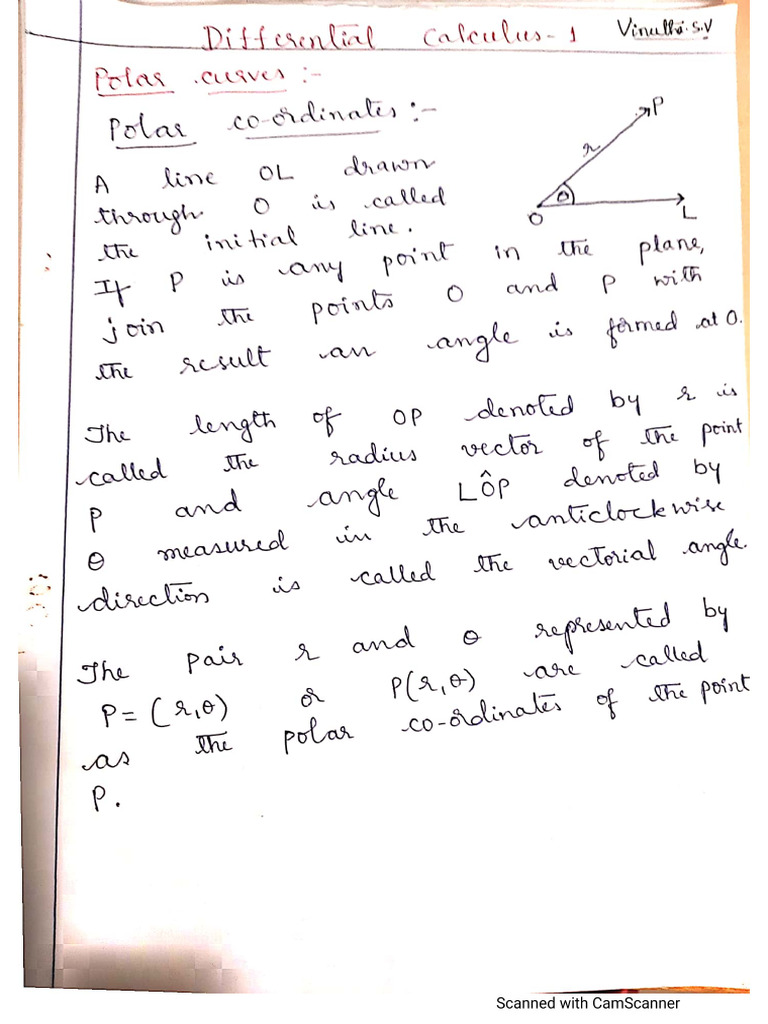 Differential Calculus-1 Vinutha.S.V
Polar curves:-
Polar co-ordinates:-
A line OL drawn
through O is called
the initial line.
If P is any point in the plane,
join the points O and P with
the result an angle is formed at O.
P
r
θ
O
L
The length of OP denoted by r is
called the radius vector of the point
P and angle LÔP denoted by
θ measured in the anticlockwise
direction is called the vectorial angle.
The pair r and θ represented by
P=(r,θ) or P(r,θ) are called
as the polar co-ordinates of the point
P.
Scanned with CamScanner